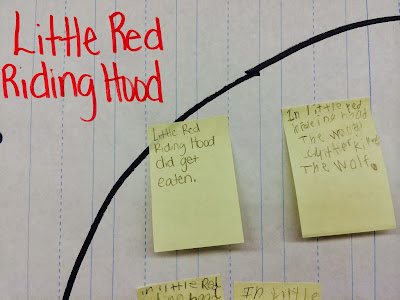 Little Red
Riding Hood
Little Red
Riding Hood
did get
eaten.
In little red
hood
The wood
The wolf.
In little Red
hood
In little